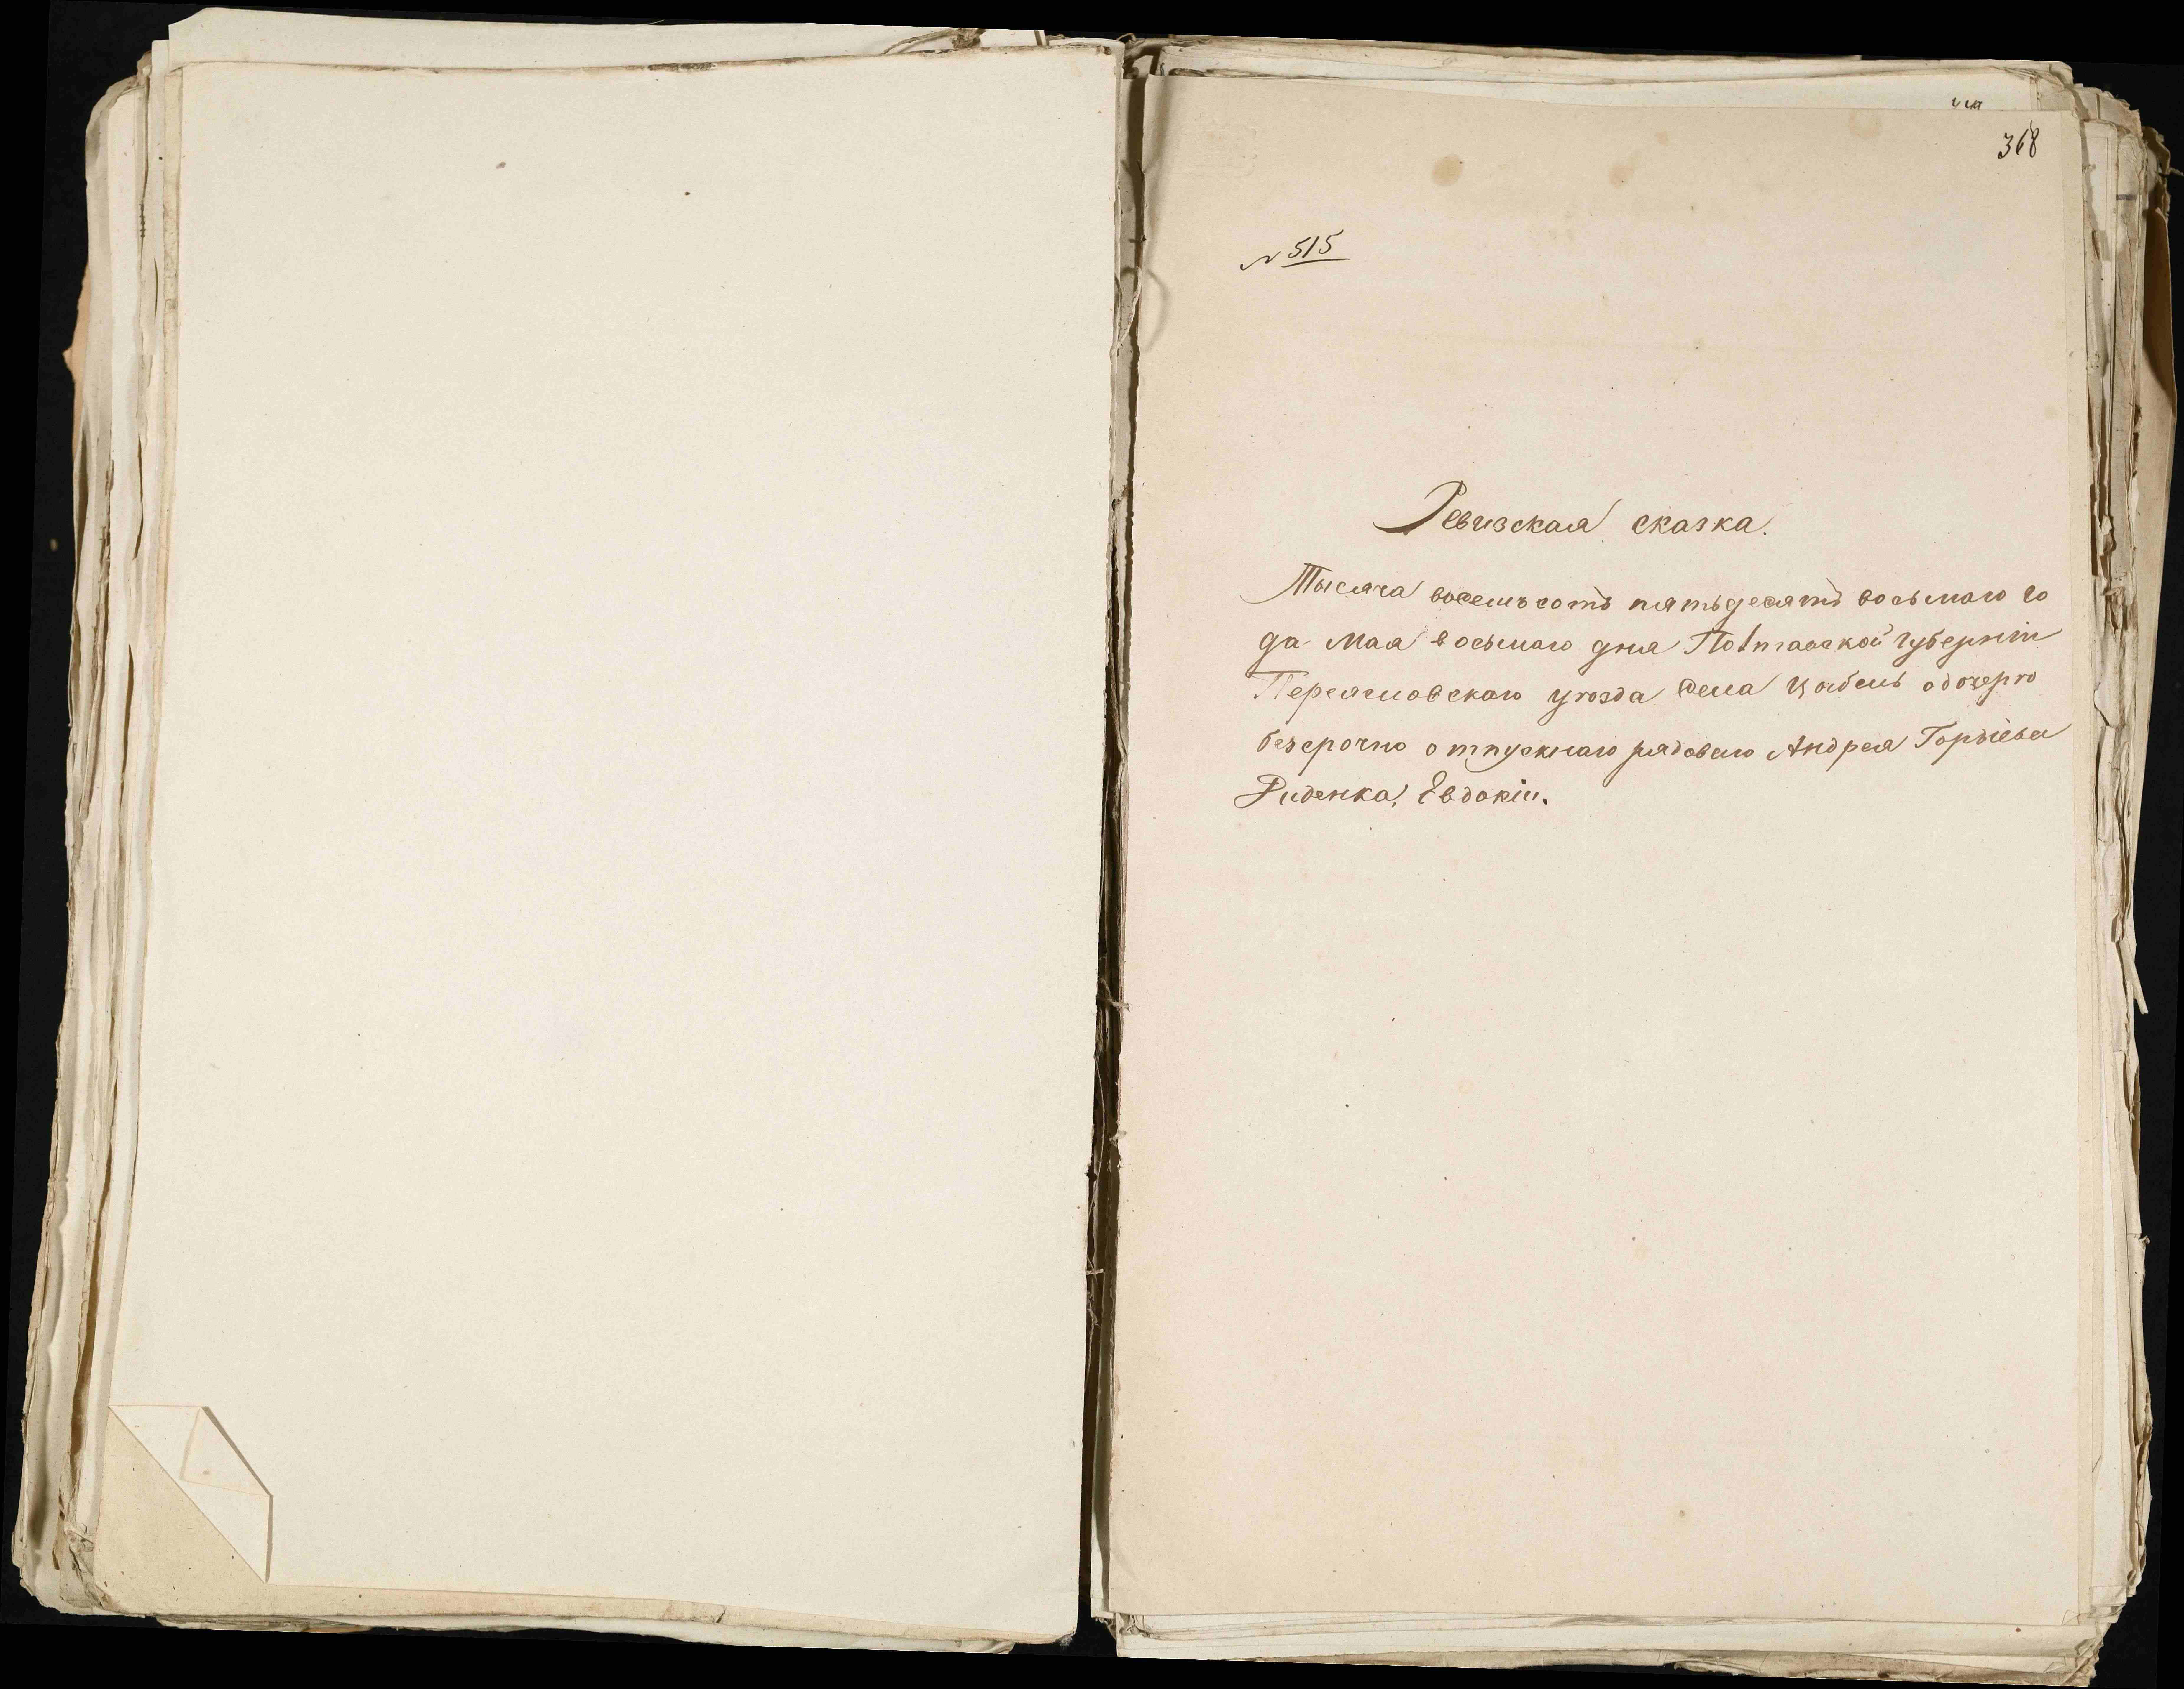 368
№ 515
Ревизская сказка.
Тысяча восемьсотъ пятьдесятъ восьмаго го
да Мая восьмаго дня Полтавской губерніи
Переяславскаго уѣзда села одочерѣ
безсрочно отпускнаго рядоваго Андрея Гордѣева
Диденка, Евдокіи.